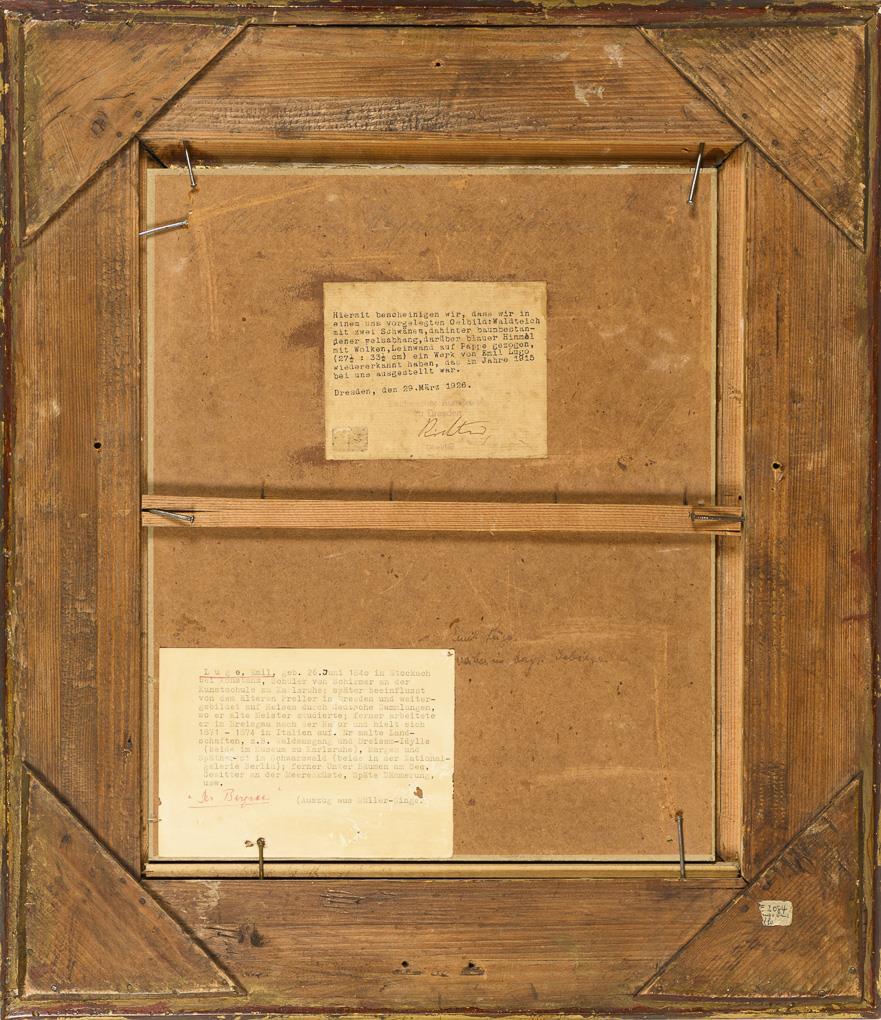 Hiermit bescheinigen wir, dass wir in
einem uns vorgelegten Oelbild:Waldteich
mit zwei Schwänen,dahinter baumbestan-
dener Felsabhang,darüber blauer Himmel
mit Wolken,Leinwand auf Pappe gezogen,
(27½ : 33½ cm) ein Werk von Emil Lugo
wiedererkannt haben, das im Jahre 1915
bei uns ausgestellt war.
Dresden, den 29.März 1926.
zu Dresden
L u g o, Emil, geb. 26.Juni 1840 in Stockach
bei Konstanz, Schüler von Schirmer an der
Kunstschule zu Karlsruhe; später beeinflusst
von dem älteren Preller in Dresden und weiter-
gebildet auf Reisen durch deutsche Sammlungen,
wo er alte Meister studierte; ferner arbeitete
er im Breisgau nach der Natur und hielt sich
1871 - 1874 in Italien auf. Er malte Land-
schaften, z.B. Waldeingang und Dreisam-Idylle
(beide im Museum zu Karlsruhe), Morgen und
Spätherbst im Schwarzwald (beide in der National-
galerie Berlin); ferner Unter Bäumen am See,
Gewitter an der Meeresküste, Späte Dämmerung,
usw.
"Der Bergsee" (Auszug aus Müller-Singer
Emil Lugo